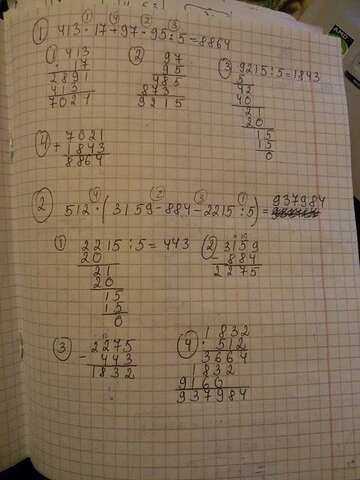 ① ④ ② ③
1 413·17+97·95:5=8864
1 413
· 17
2891
413
7021
2 97
95
485
873
9215
3 9215:5=1843
5
42
40
21
20
15
15
0
4 7021
+ 1843
8864
④ ② ③ ①
2 512·(3159-884-2215:5)=937984
1 2215:5=443
20
21
20
15
15
0
2 3159
- 884
2275
3 2275
- 443
1832
4 1832
· 512
3664
1832
9160
937984